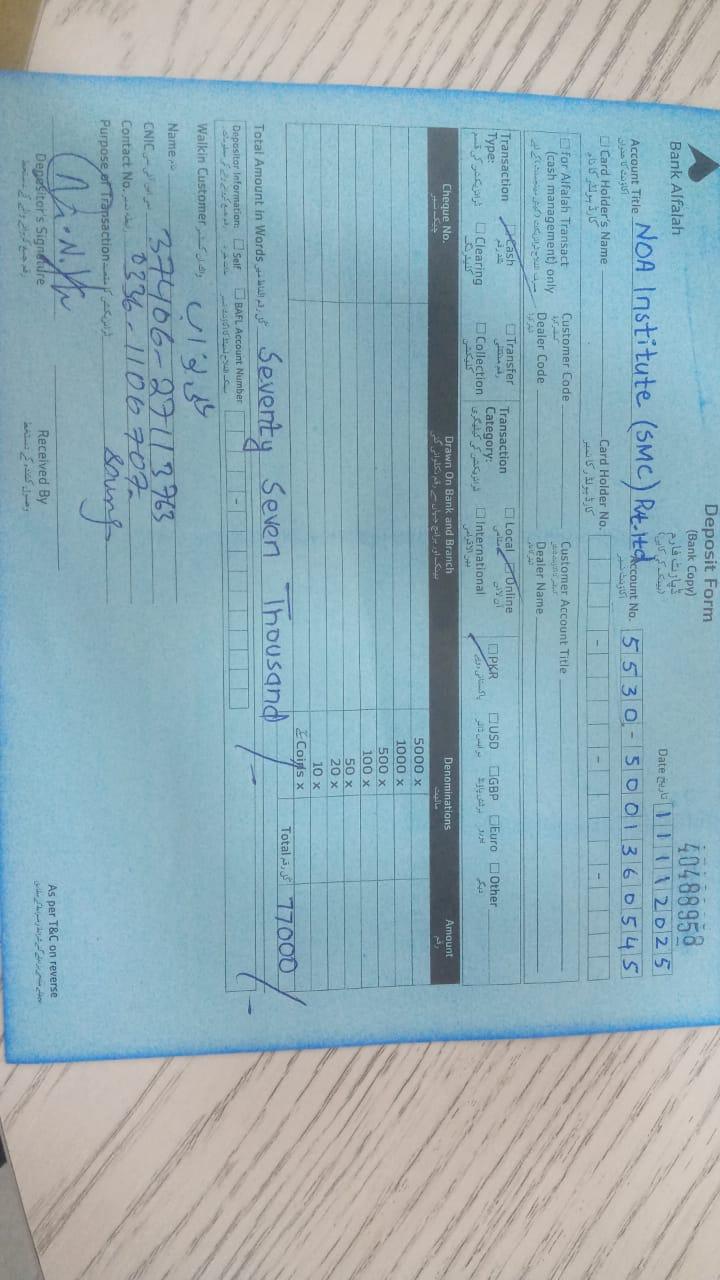 Bank Alfalah
Deposit Form
(Bank Copy)
ڈپازٹ فارم
(بینک کی کاپی)
40488958
Date تاریخ 11112025
Account Title NOA Institute (SMC) Pvt. ltd Account No. 5530-5001360545
Card Holder's Name Card Holder No.
for Alfalah Transact
(cash management) only
Customer Code
Dealer Code
Customer Account Title
Dealer Name
Transaction Type: Cash Transfer
Clearing Collection
Transaction Category: Local Online
International
PKR USD GBP Euro Other
Cheque No. Drawn On Bank and Branch Denominations Amount
5000 x
1000 x
500 x
100 x
50 x
20 x
10 x
Coins x
Total کل رقم 77000/-
Total Amount in Words Seventy Seven Thousand /-
Depositor Information: Self BAFL Account Number
Walkin Customer
Name نام
CNIC 37406-27113763
Contact No. 0336-1106707
Purpose of Transaction
Depositor's Signature
Received By
As per T&C on reverse